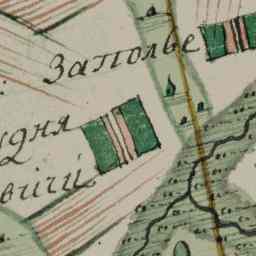 Заполье
удня
вичи